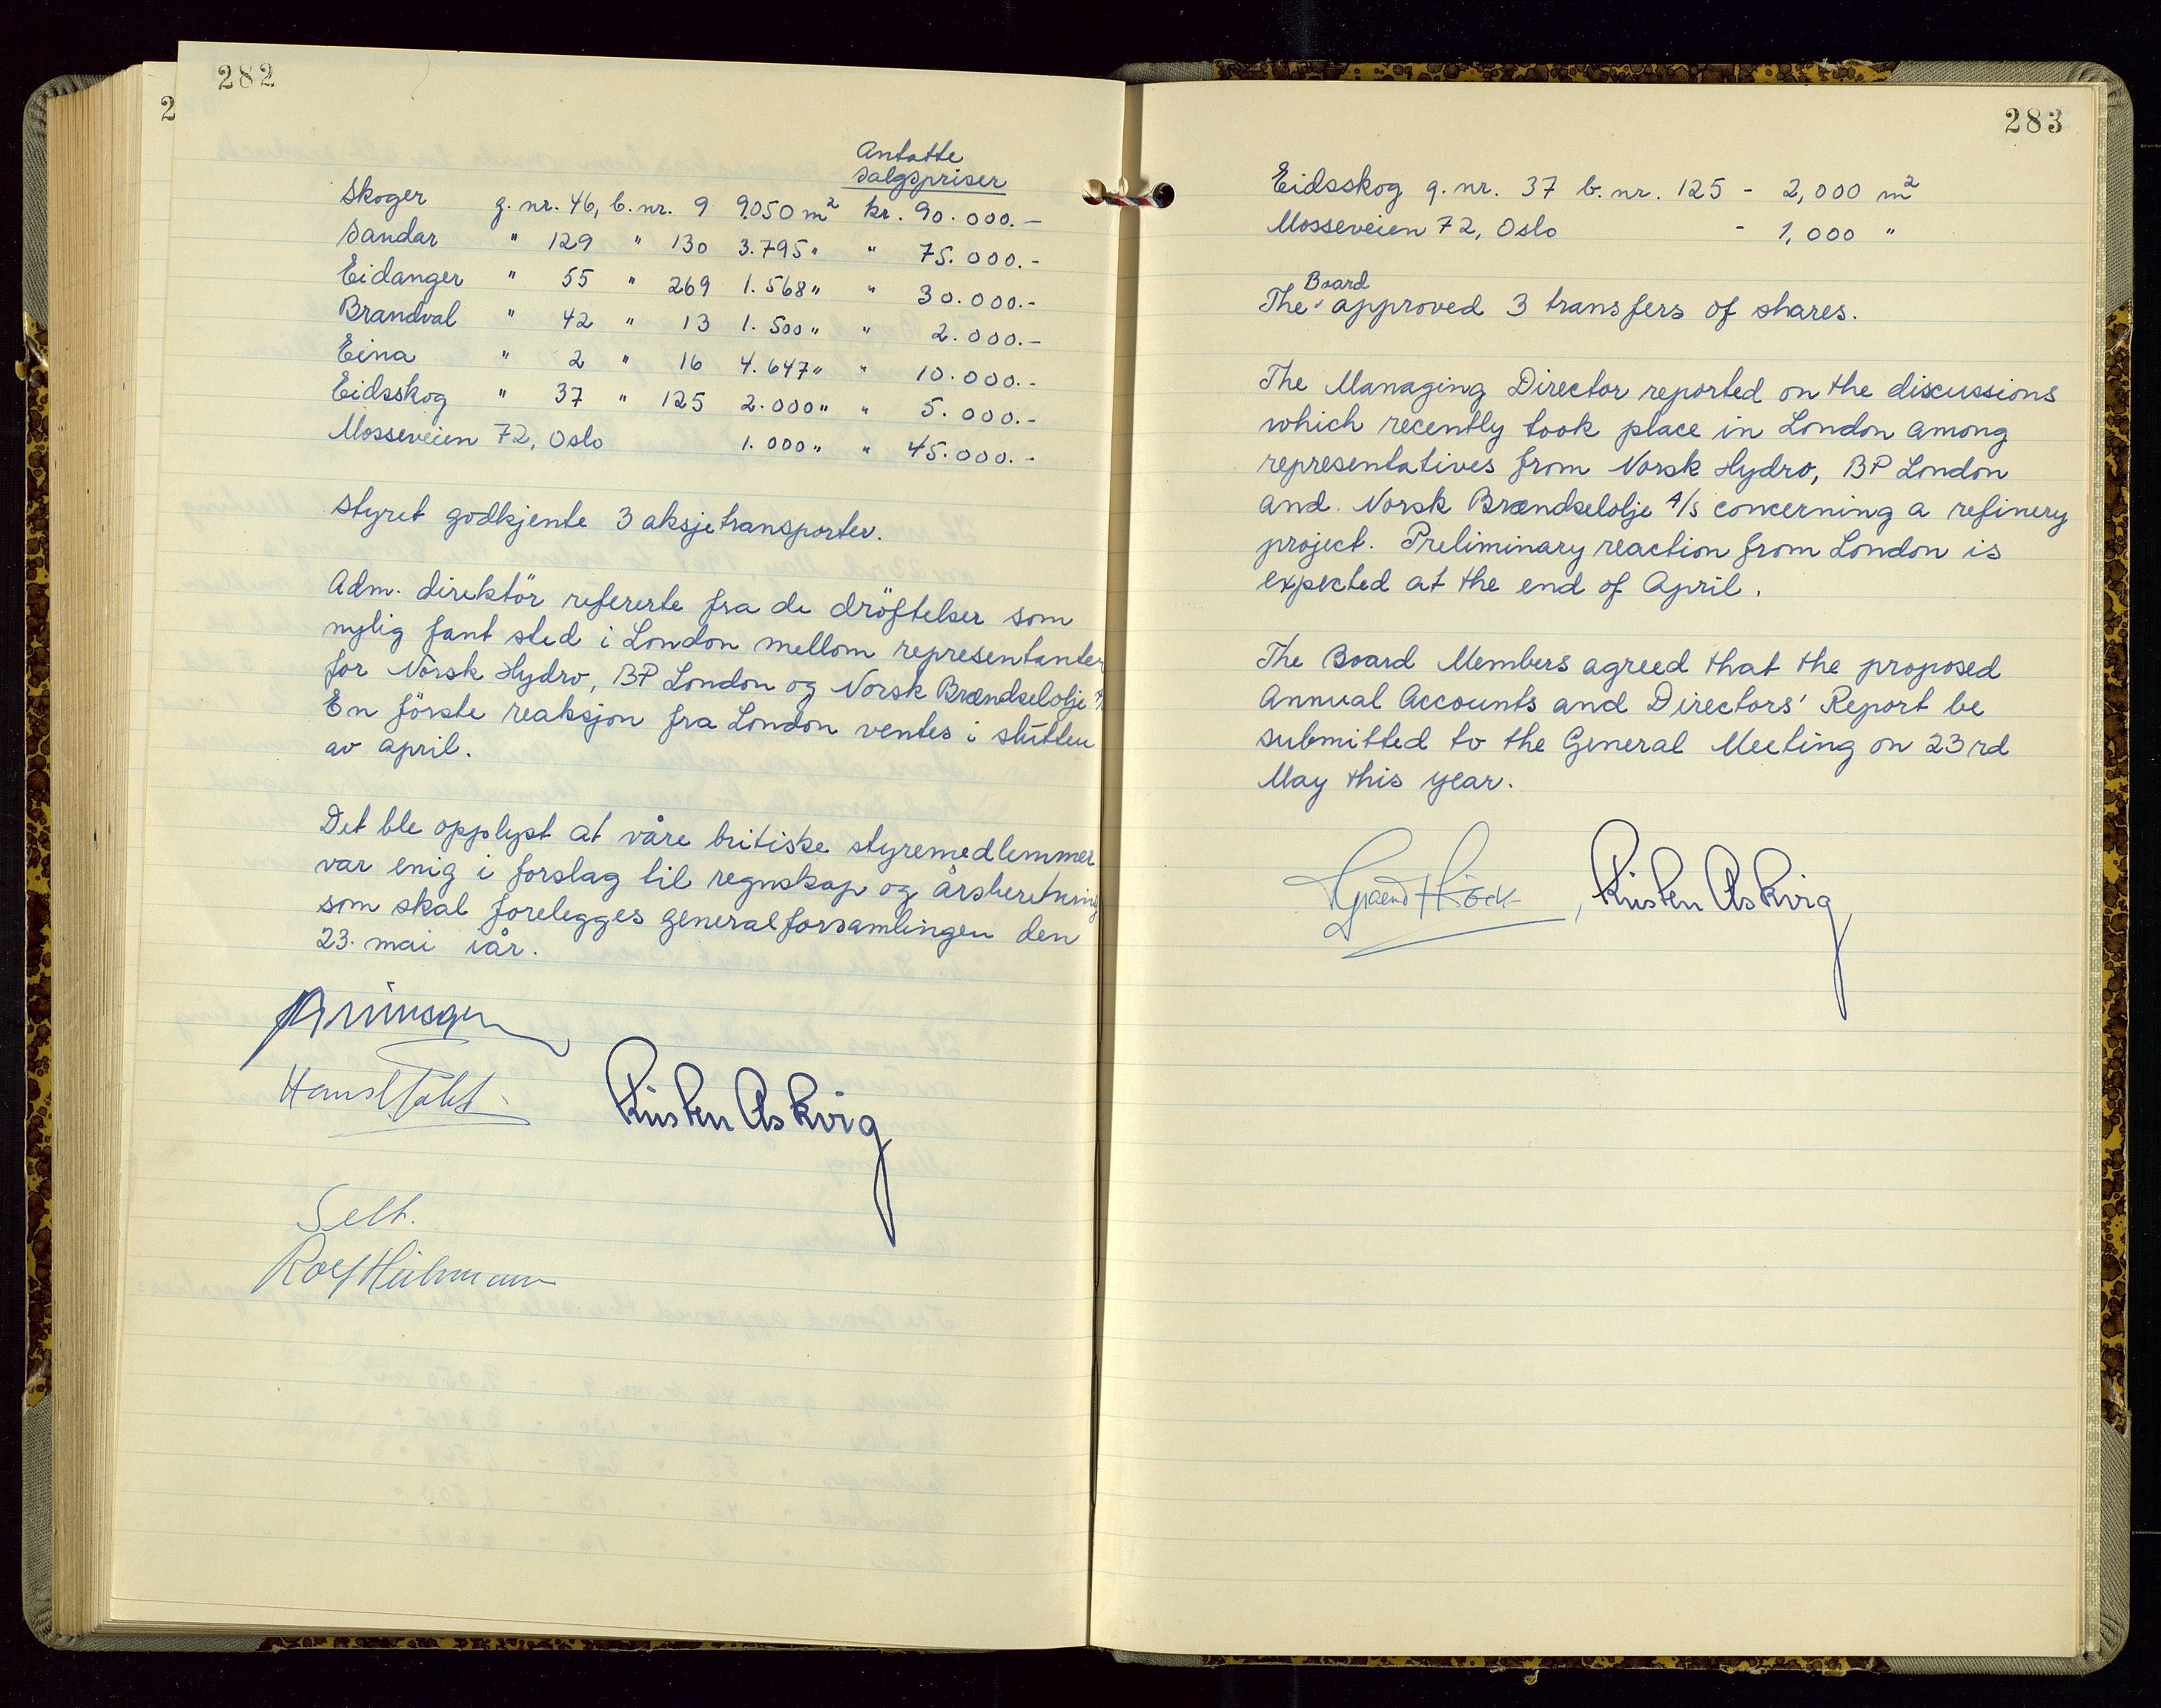 282
2
Antatte
salgspriser
Skoger g. nr. 46, b. nr. 9 9050 m² kr. 90.000.-
Sandar " 129 " 130 3.795 " " 75.000.-
Eidanger " 55 " 269 1.568 " " 30.000.-
Brandval " 42 " 13 1.500 " " 2.000.-
Eina " 2 " 16 4.647 " " 10.000.-
Eidsskog " 37 " 125 2.000 " " 5.000.-
Mosseveien 72, Oslo 1.000 " " 45.000.-
Styret godkjente 3 aksjetransporter.
Adm. direktör refererte fra de dröftelser som
nylig fant sted i London mellom representanter
for Norsk Hydro, BP London og Norsk Brændselolje A/
En förste reaksjon fra London ventes i slutten
av april.
Det ble opplyst at våre britiske styremedlemmer
var enig i forslag til regnskap og årsberetning
som skal forelegges generalforsamlingen den
23. mai iår.
Kirsten Askvig
283
Eidsskog g. nr. 37 b. nr. 125 - 2,000 m²
Mosseveien 72, Oslo - 1,000 "
The Board approved 3 transfers of shares.
The Managing Director reported on the discussions
which recently took place in London among
representatives from Norsk Hydro, BP London
and. Norsk Brændselolje A/S concerning a refinery
project. Preliminary reaction from London is
expected at the end of April.
The Board Members agreed that the proposed
Annual Accounts and Directors' Report be
submitted to the General Meeting on 23rd
May this year.
, Kirsten Askvig